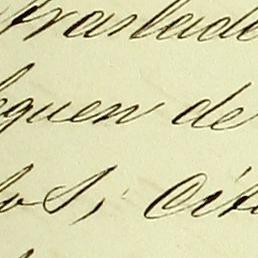 traslado
leguen de
los; Cit